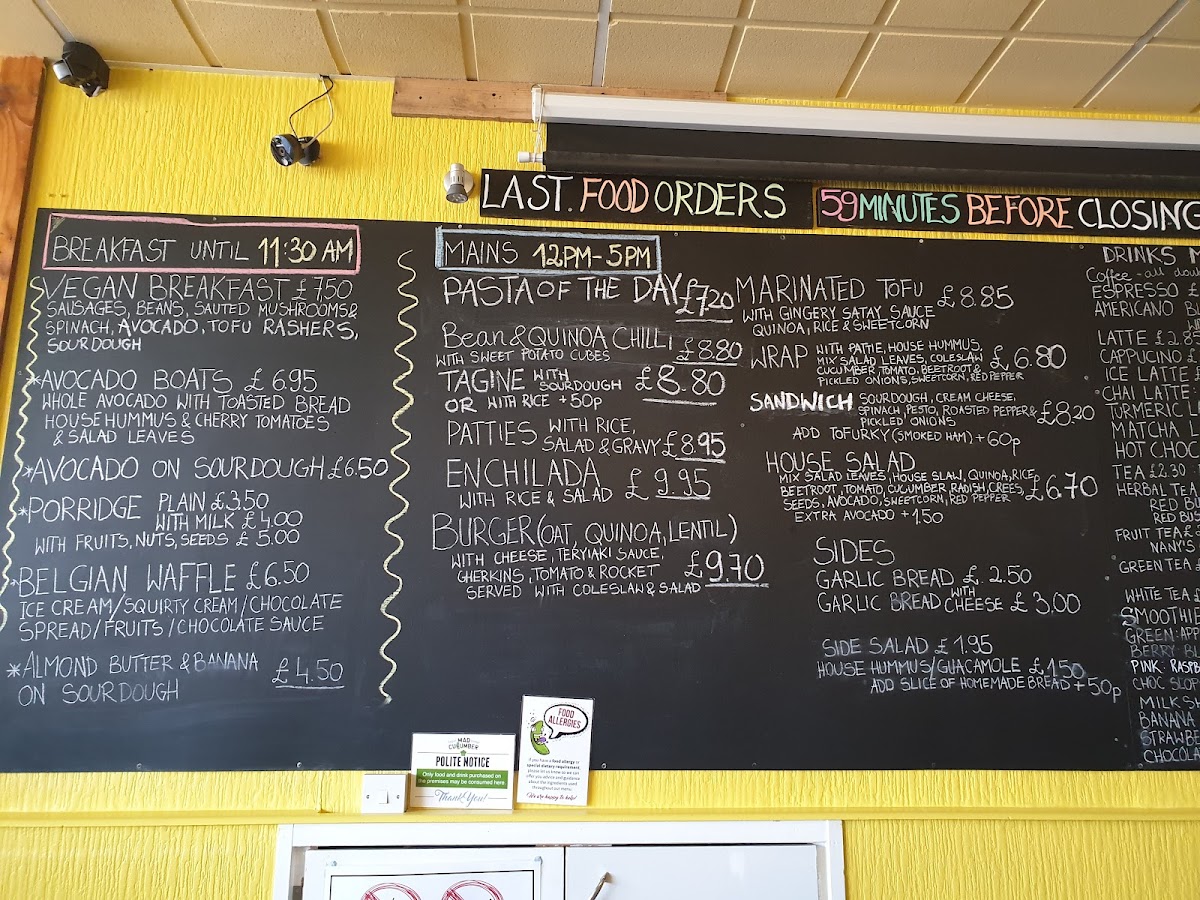 LAST. FOOD ORDERS
59 MINUTES BEFORE CLOSING
BREAKFAST UNTIL 11:30 AM
VEGAN BREAKFAST £7.50
SAUSAGES, BEANS, SAUTED MUSHROOMS &
SPINACH, AVOCADO, TOFU RASHERS,
SOURDOUGH
*AVOCADO BOATS £6.95
WHOLE AVOCADO WITH TOASTED BREAD
HOUSE HUMMUS & CHERRY TOMATOES
& SALAD LEAVES
*AVOCADO ON SOURDOUGH £6.50
*PORRIDGE PLAIN £3.50
WITH MILK £4.00
WITH FRUITS, NUTS, SEEDS £5.00
BELGIAN WAFFLE £6.50
ICE CREAM/SQUIRTY CREAM/CHOCOLATE
SPREAD/FRUITS/CHOCOLATE SAUCE
*ALMOND BUTTER & BANANA
ON SOURDOUGH £4.50
MAINS 12PM-5PM
PASTA OF THE DAY £7.20
Bean & QUINOA CHILLI
WITH SWEET POTATO CUBES £8.80
TAGINE WITH SOURDOUGH £8.80
OR WITH RICE +50p
PATTIES WITH RICE,
SALAD & GRAVY £8.95
ENCHILADA
WITH RICE & SALAD £9.95
BURGER (OAT, QUINOA, LENTIL)
WITH CHEESE, TERYIAKI SAUCE,
GHERKINS, TOMATO & ROCKET £9.70
SERVED WITH COLESLAW & SALAD
MARINATED TOFU £8.85
WITH GINGERY SATAY SAUCE
QUINOA, RICE & SWEETCORN
WRAP WITH PATTIE, HOUSE HUMMUS,
MIX SALAD LEAVES, COLESLAW £6.80
CUCUMBER, TOMATO, BEETROOT &
PICKLED ONIONS, SWEETCORN, RED PEPPER
SANDWICH SOURDOUGH, CREAM CHEESE,
SPINACH, PESTO, ROASTED PEPPER & £8.20
PICKLED ONIONS
ADD TOFURKY (SMOKED HAM) +60p
HOUSE SALAD
MIX SALAD LEAVES, HOUSE SLAW, QUINOA, RICE,
BEETROOT, TOMATO, CUCUMBER, RADISH, CREES, £6.70
SEEDS, AVOCADO, SWEETCORN, RED PEPPER
EXTRA AVOCADO +1.50
SIDES
GARLIC BREAD £2.50
GARLIC BREAD WITH CHEESE £3.00
SIDE SALAD £1.95
HOUSE HUMMUS/GUACAMOLE £1.50
ADD SLICE OF HOMEMADE BREAD +50p
DRINKS M
Coffee - all dou
ESPRESSO £
AMERICANO B
LATTE £2.85
CAPPUCINO £
ICE LATTE £
CHAI LATTE
TURMERIC L
MATCHA L
HOT CHOC
TEA £2.30
HERBAL TEA
RED BU
RED BUS
FRUIT TEA £
NANY'S
GREEN TEA £
WHITE TEA £
SMOOTHIE
GREEN: APP
BERRY: BL
PINK: RASPB
CHOC SLOP
MILKSH
BANANA
STRAWBE
CHOCOLA
MAD CUCUMBER
POLITE NOTICE
Only food and drink purchased on
the premises may be consumed here
Thank You!
FOOD
ALLERGIES
If you have a food allergy or
special dietary requirement,
please let us know so we can
offer you advice and guidance
about the ingredients used
throughout our menu.
We are happy to help!